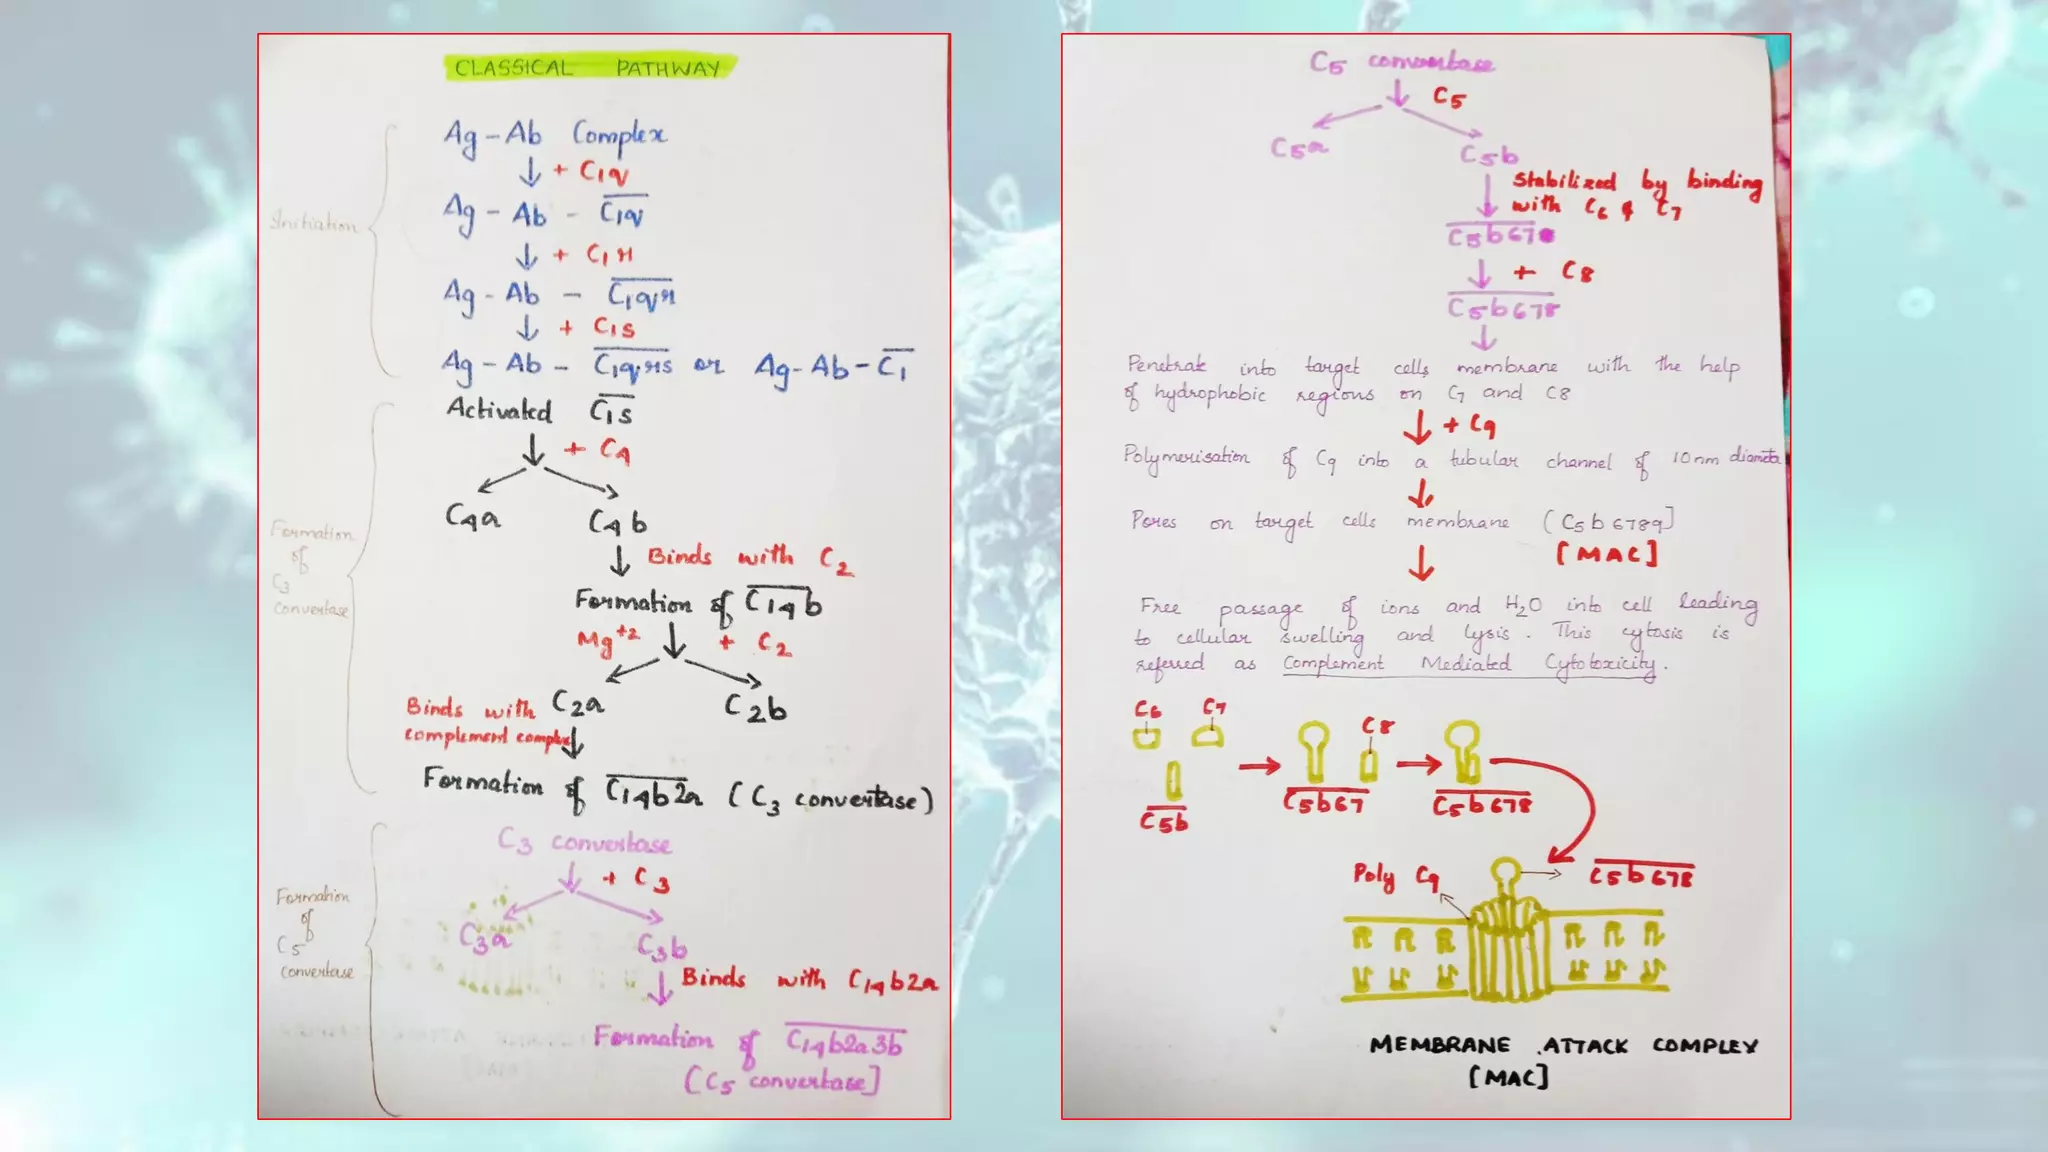 CLASSICAL PATHWAY
Initiation
Ag - Ab Complex
↓ + C1q
Ag - Ab - C1q
↓ + C1r
Ag - Ab - C1qr
↓ + C1s
Ag - Ab - C1qrs or Ag - Ab - C1
Formation
of
C3
convertase
Activated C1s
↓ + C4
C4a C4b
↓ Binds with C2
Formation of C14b
Mg+2 ↓ + C2
C2a C2b
Binds with
complement complex ↓
Formation of C14b2a (C3 convertase)
Formation
of
C5
convertase
C3 convertase
↓ + C3
C3a C3b
↓ Binds with C14b2a
Formation of C14b2a3b
[C5 convertase]
C5 convertase
↓ C5
C5a C5b
↓ Stabilized by binding
with C6 & C7
C5b67
↓ + C8
C5b678
↓
Penetrate into target cells membrane with the help
of hydrophobic regions on C7 and C8
↓ + C9
Polymerisation of C9 into a tubular channel of 10nm diameter
↓
Pores on target cells membrane (C5b6789]
↓ [MAC]
Free passage of ions and H2O into cell leading
to cellular swelling and lysis. This cytosis is
referred as Complement Mediated Cytotoxicity.
C6 C7 C8
C5b → C5b67 → C5b678
Poly C9 → C5b678
MEMBRANE ATTACK COMPLEX
[MAC]